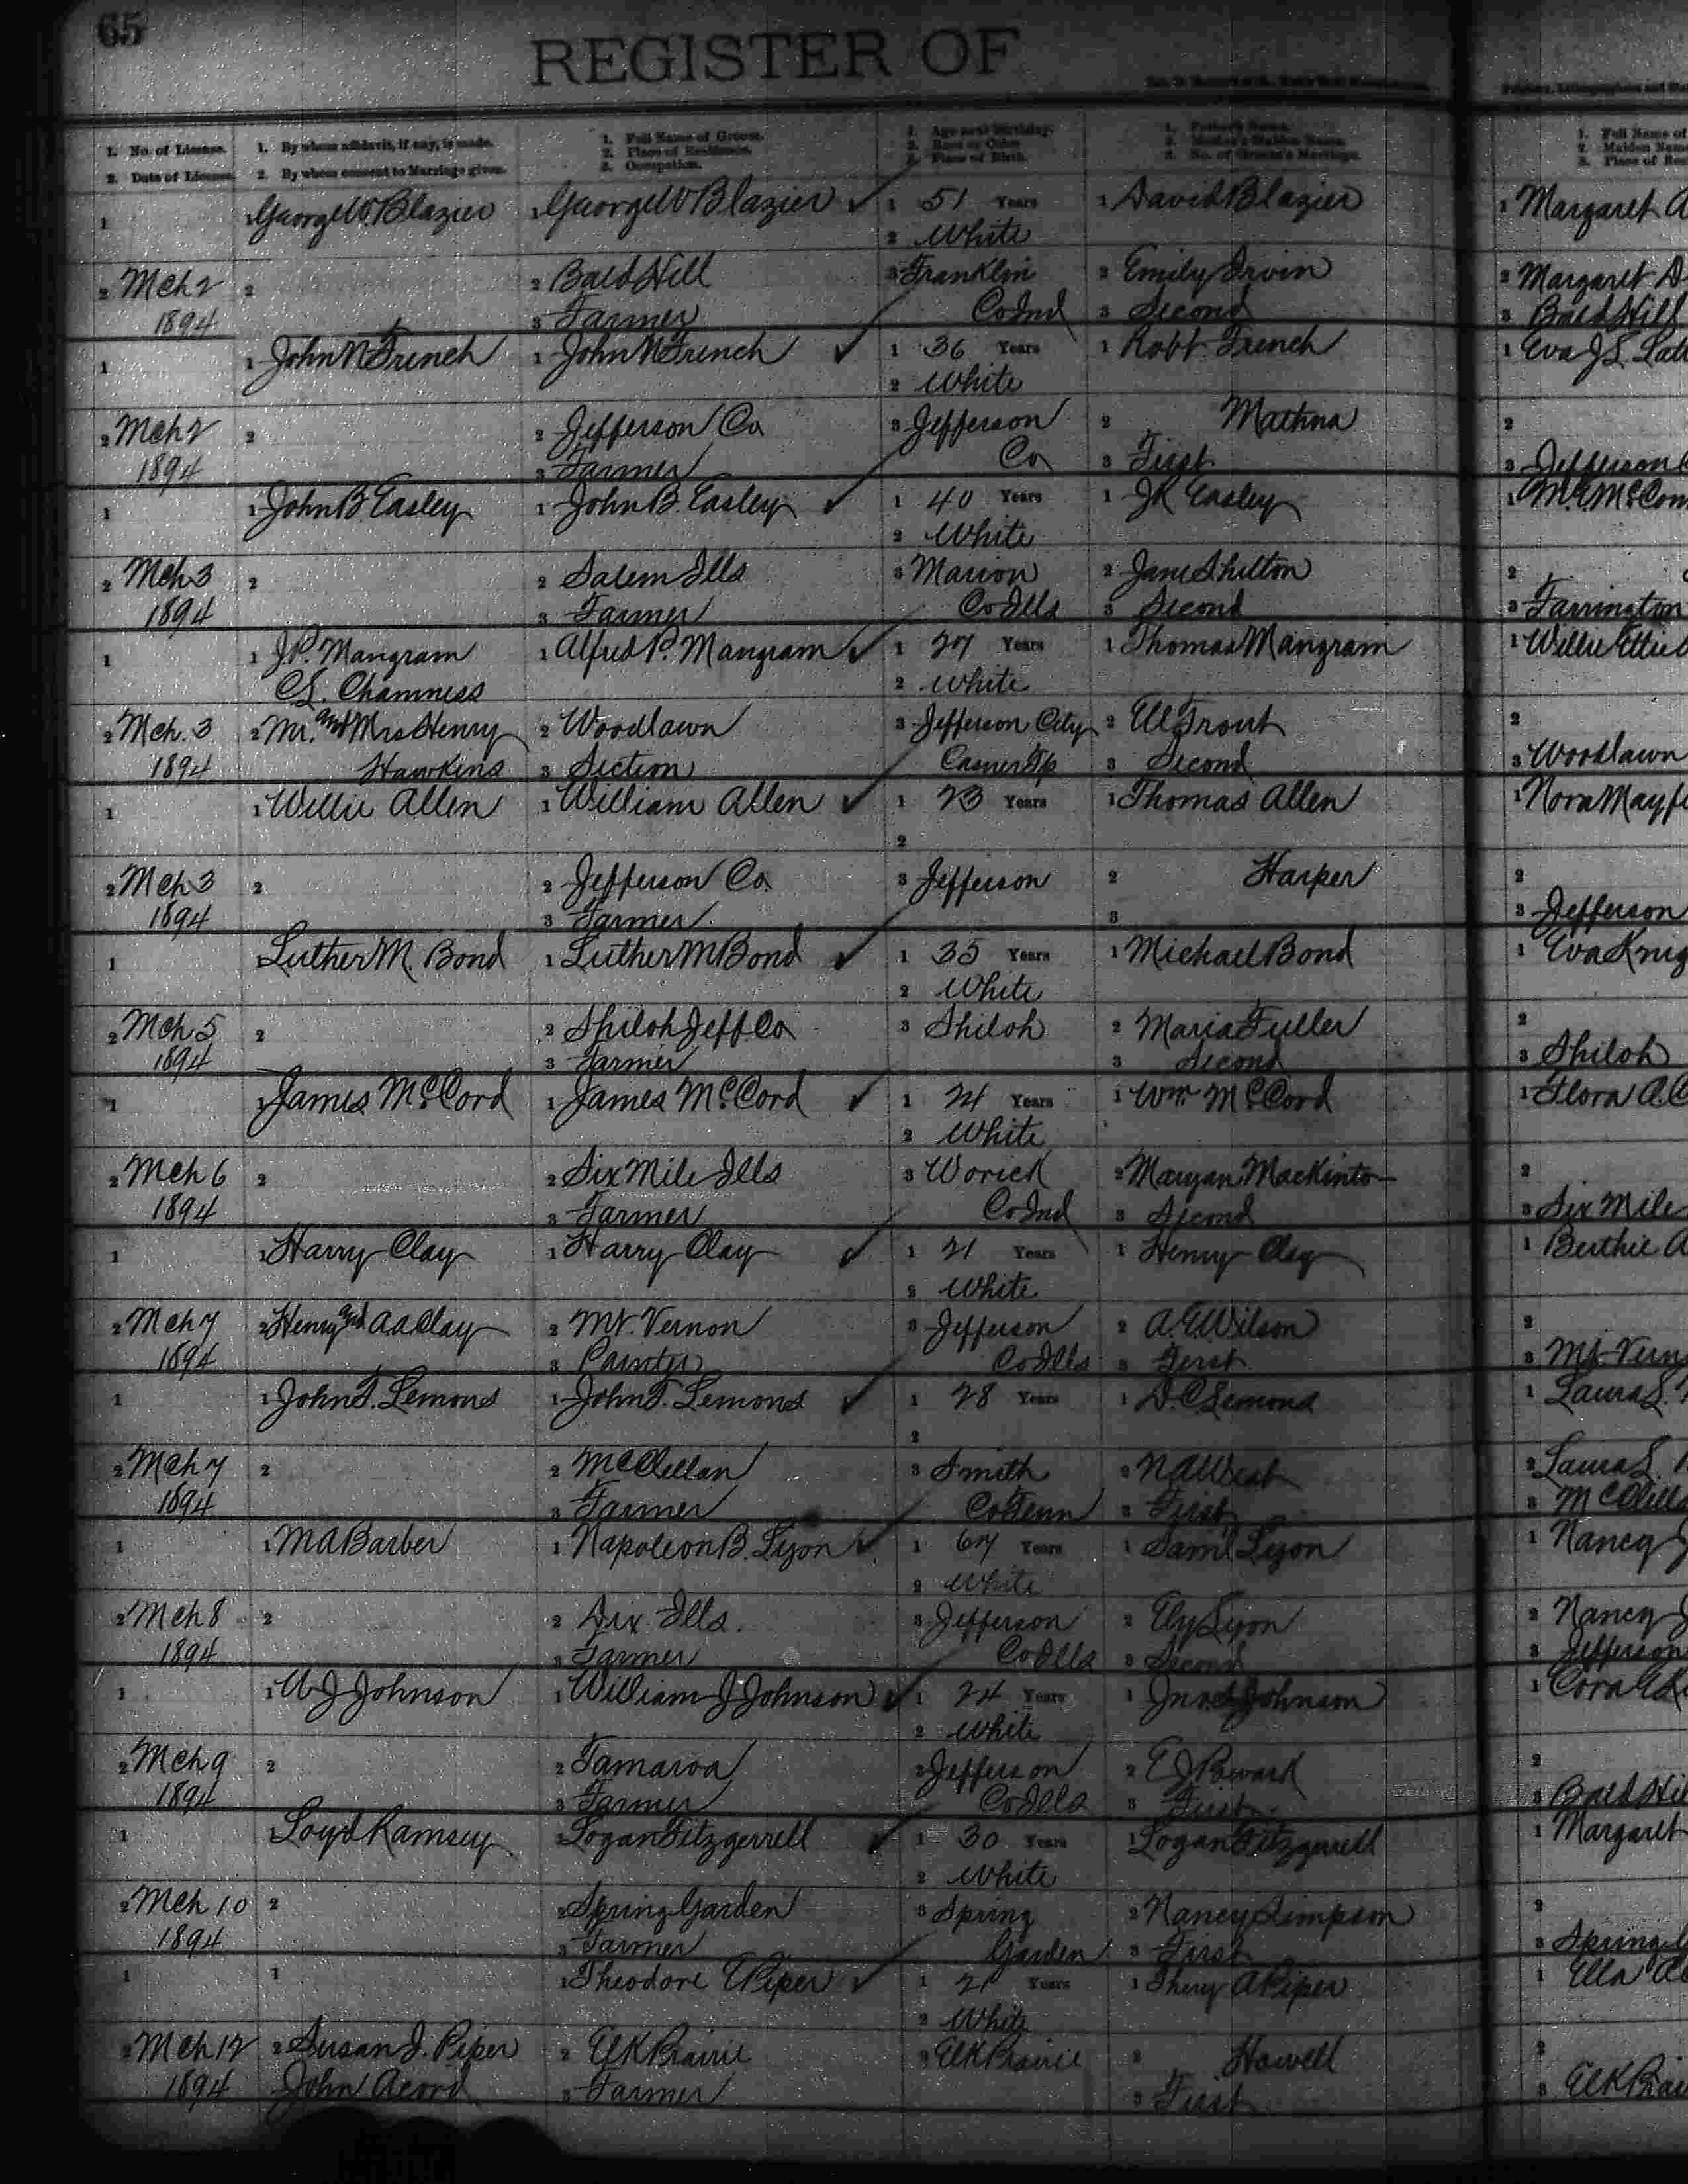 65
REGISTER OF
1. No. of License.
2. Date of License.
1. By whom affidavit, if any, is made.
2. By whom consent to Marriage given.
1. Full Name of Groom.
2. Place of Residence.
3. Occupation.
1. Age next Birthday.
2. Race or Color.
3. Place of Birth.
1. Father's Name.
2. Mother's Maiden Name.
3. No. of Groom's Marriage.
1. Full Name of
2. Maiden Name
3. Place of Res
1 1 George W. Blazier 1 George W Blazier ✓ 1 51 Years 1 David Blazier 1 Margaret A
2 White
2 Mch 2 2 2 Bald Hill 3 Franklin 2 Emily Irvin 2 Margaret
1894 3 Farmer Co Ind 3 Second 3 Bald Hill
1 1 John N French 1 John N French ✓ 1 36 Years 1 Robt French 1 Eva J S.
2 White
2 Mch 2 2 2 Jefferson Co 3 Jefferson 2 Mathna 2
1894 3 Farmer Co 3 First 3 Jefferson
1 1 John B. Easley 1 John B. Easley ✓ 1 40 Years 1 JK Easley 1
2 White
2 Mch 3 2 2 Salem Ills 3 Marion 2 Jane Shelton 2
1894 3 Farmer Co Ills 3 Second 3 Farrington
1 1 J.P. Mangram 1 Alfred P. Mangram ✓ 1 27 Years 1 Thomas Mangram 1 Willie Ettie
C.S. Chamness 2 White
2 Mch. 3 2 Mr. and Mrs Henry 2 Woodlawn 3 Jefferson City 2 Ell Trout 2
1894 Hawkins 3 Section Casner Tp 3 Second 3 Woodlawn
1 1 Willie Allen 1 William Allen ✓ 1 23 Years 1 Thomas Allen 1 Nora Mayf
2
2 Mch 3 2 2 Jefferson Co. 3 Jefferson 2 Harper 2
1894 3 Farmer 3 3 Jefferson
1 Luther M. Bond 1 Luther M Bond ✓ 1 35 Years 1 Michael Bond 1 Eva Knig
2 White
2 Mch 5 2 2 Shiloh Jeff Co 3 Shiloh 2 Maria Fuller 2
1894 3 Farmer 3 Second 3 Shiloh
1 1 James McCord 1 James McCord ✓ 1 24 Years 1 Wm McCord 1 Flora A. C
2 White
2 Mch 6 2 2 Six Mile Ills 3 Worick 2 Maryan Mackinto- 2
1894 3 Farmer Co Ind 3 Second 3 Six Mile
1 1 Harry Clay 1 Harry Clay ✓ 1 21 Years 1 Henry Clay 1 Berthie A
2 White
2 Mch 7 2 Henry and A A Clay 2 Mt. Vernon 3 Jefferson 2 A. E Wilson 2
1894 3 Painter Co Ills 3 First 3 Mt. Vern
1 1 John F. Lemons 1 John F. Lemons ✓ 1 28 Years 1 D. C Lemons 1 Laura L.
2
2 Mch 7 2 2 McClellan 3 Smith 2 N A West 2 Laura L.
1894 3 Farmer Co Tenn 3 First 3 McClella
1 1 M A Barber 1 Napoleon B. Lyon ✓ 1 67 Years 1 Saml Lyon 1 Nancy J
2 White
2 Mch 8 2 2 Dix Ills. 3 Jefferson 2 Ely Lyon 2 Nancy J
1894 3 Farmer Co Ills 3 Second 3 Jefferson
1 1 W J Johnson 1 William J Johnson ✓ 1 24 Years 1 Johnson 1 Cora
2 White
2 Mch 9 2 2 Tamaroa 3 Jefferson 2 E J 2
1894 3 Farmer Co Ills 3 First 3 Bald Hil
1 1 Loyd Ramsey 1 Logan Fitzgerrell ✓ 1 30 Years 1 Logan Fitzgerrell 1 Margaret
2 White
2 Mch 10 2 2 Spring Garden 3 Spring 2 Nancy Simpson 2
1894 3 Farmer Garden 3 First 3 Spring G
1 1 1 Theodore E Piper ✓ 1 21 Years 1 A Piper 1 Ella
2 White
2 Mch 12 2 Susan J. Piper 2 Elk Prairie 3 Elk Prairie 2 Howell 2
1894 John Acord 3 Farmer 3 First 3 Elk Prai